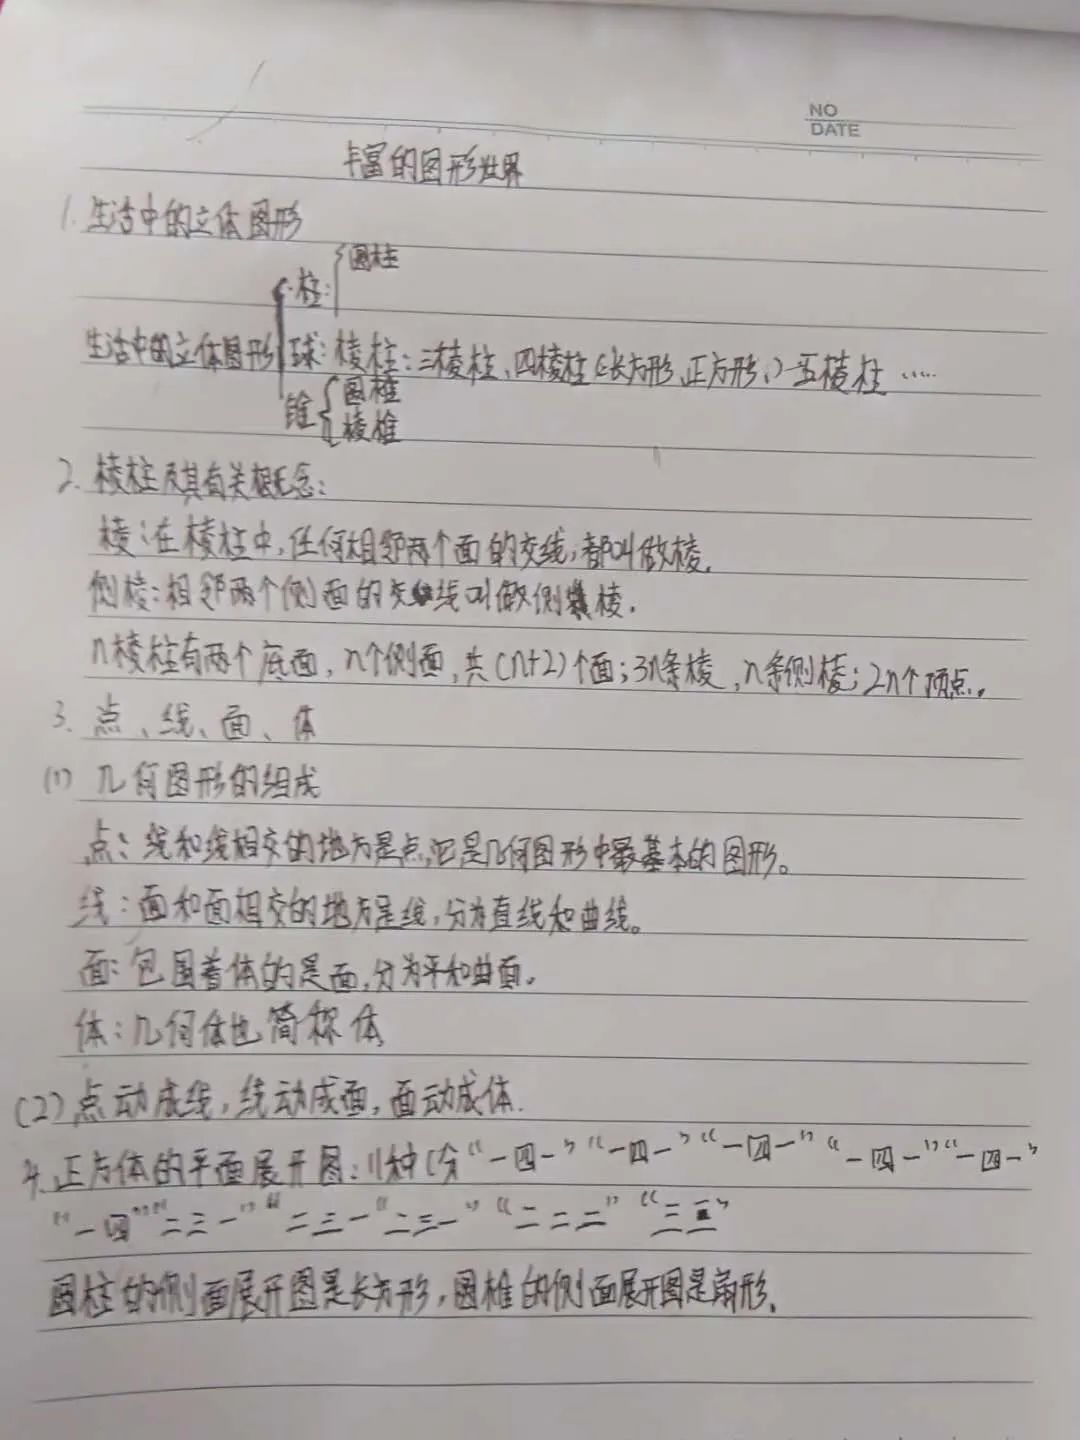 NO
DATE
丰富的图形世界
1. 生活中的立体图形
圆柱
柱:
生活中的立体图形 球: 棱柱:三棱柱、四棱柱(长方形,正方形,)五棱柱……
圆椎
锥
棱椎
2. 棱柱及其有关概念:
棱:在棱柱中,任何相邻两个面的交线,都叫做棱.
侧棱:相邻两个侧面的交线叫做侧棱.
n棱柱有两个底面,n个侧面,共(n+2)个面;3n条棱,n条侧棱;2n个顶点.
3. 点、线、面、体
(1) 几何图形的组成
点:线和线相交的地方是点,它是几何图形中最基本的图形。
线:面和面相交的地方是线,分为直线和曲线。
面:包围着体的是面,分为平和曲面。
体:几何体也简称体
(2)点动成线,线动成面,面动成体.
4.正方体的平面展开图:11种(分“一四一”“一四一”“一四一”“一四一”“一四一”
“一四”“二三一”“二三一“二三一”“二二二”“三三”
圆柱的侧面展开图是长方形,圆椎的侧面展开图是扇形.